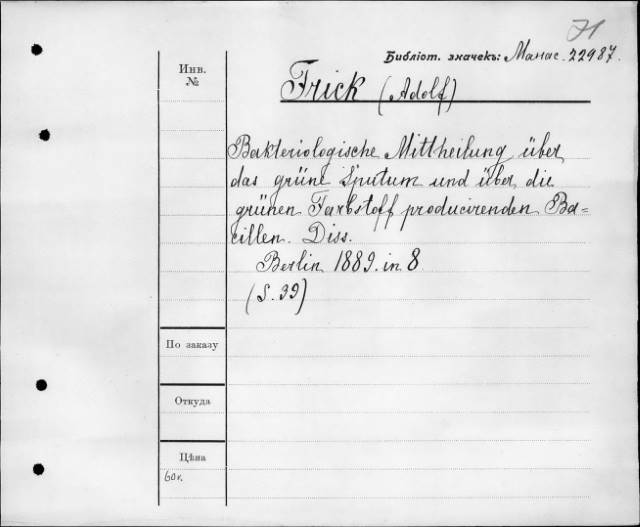 Библіот. значекъ: Манас. 22987.
Инв.
№
Frick (Adolf)
Bakteriologische Mittheilung über
das grüne Sputum und über die
grünen Farbstoff producirenden Ba=
cillen. Diss.
Berlin 1889. in 8
(S. 39)
По заказу
Откуда
Цѣна
60к.